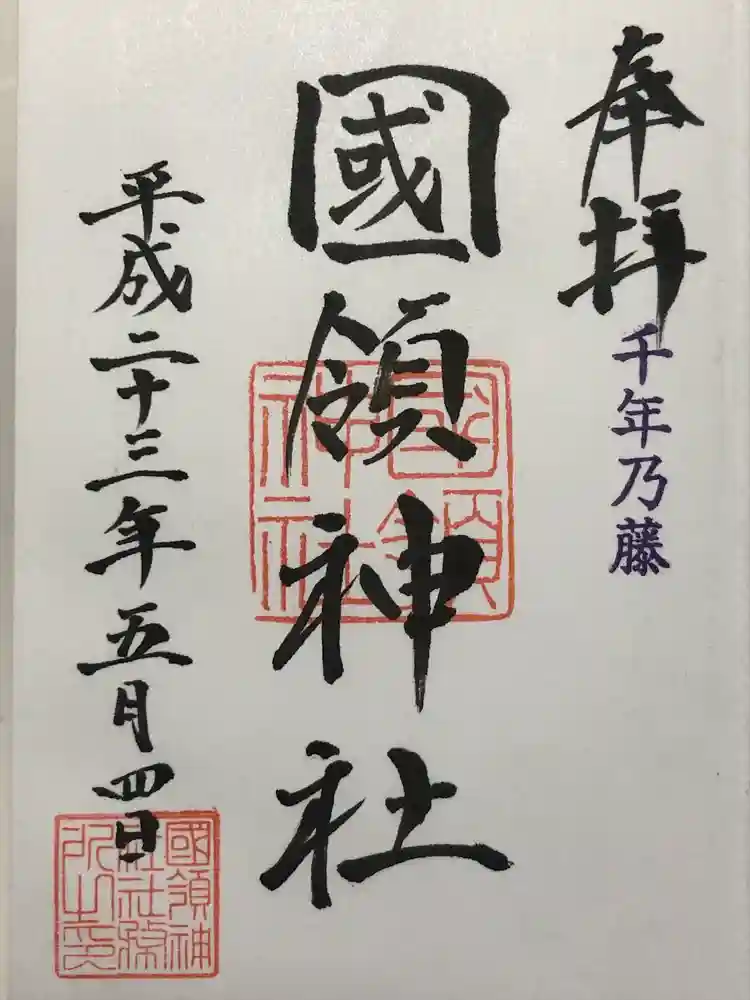 奉拝
千年乃藤
國領神社
平成二十三年五月四日
國領神社
國領神社社務所之印